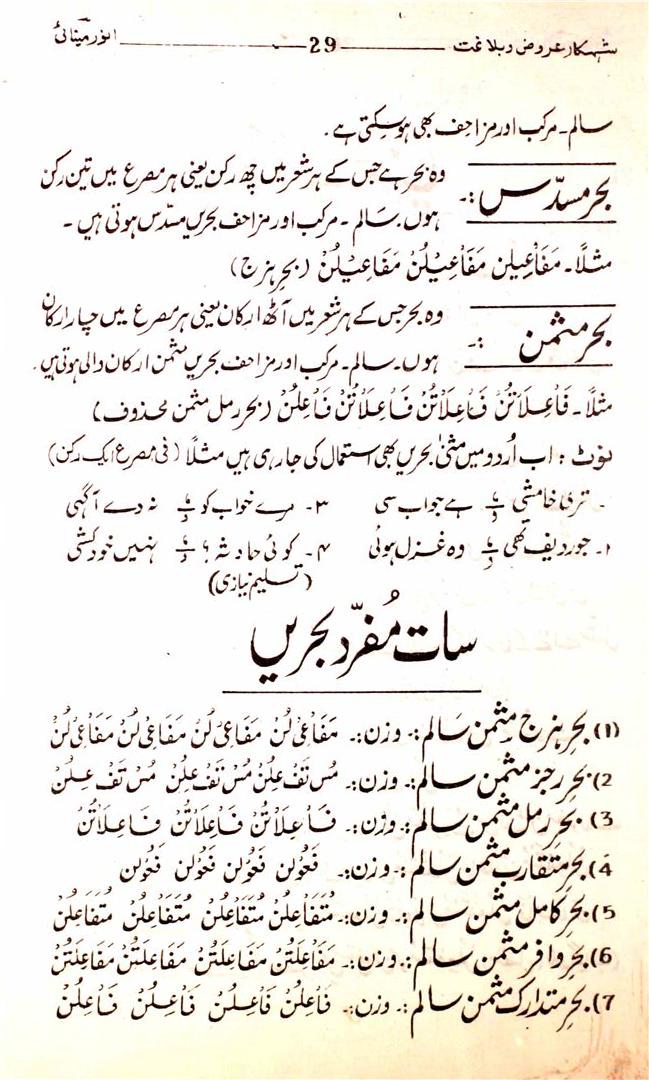 شہکار عروض و بلاغت 29 انور مینائی
سالم۔ مرکب اور مزاحف بھی ہوسکتی ہے۔
بحر مسدّس :۔ وہ بحر ہے جس کے ہر شعر میں چھ رکن یعنی ہر مصرع میں تین رکن
ہوں۔ سَالم ۔ مرکب اور مزاحف بحریں مسدّس ہوتی ہیں ۔
مثلاً۔ مَفَاْعِیلن مَفَاْعِیْلُنْ مَفَاعِیْلُنْ (بحر ہزج)
بحر مثمن :۔ وہ بحر جس کے ہر شعر میں آٹھ ارکان یعنی ہر مصرع میں چار ارکان
ہوں۔ سالم۔ مرکب اور مزاحف بحریں مثمن ارکان والی ہوتی ہیں۔
مثلاً۔ فَاْعِلَاْتُنْ فَاْعِلَاْتُنْ فَاْعِلَاْتُنْ فَاْعِلُنْ (بحر رمل مثمن محذوف)
نوٹ : اب اُردو میں مثنیٰ بحریں بھی استعمال کی جا رہی ہیں مثلاً (فی مصرع ایک رکن)
۔ تری خامشی ہے جواب سی ۳۔ مرے خواب کو نہ دے آگہی
۲۔ جو ردیف تھی وہ غزل ہوئی ۴۔ کوئی حادثہ؟ نہیں خودکشی
(تسلیم نیازی)
سات مُفرّد بحریں
(1) بحر ہزج مثمن سَالم :۔ وزن :۔ مَفَاْعِیْ لُنْ مَفَاْعِیْ لُنْ مَفَاْعِیْ لُنْ مَفَاْعِیْ لُنْ
2) بحر رجز مثمن سالم :۔ وزن :۔ مُسْ تَفْ عِلُنْ مُسْ تَفْ عِلُنْ مُسْ تَفْ عِلُنْ
3) بحر رمل مثمن سالم :۔ وزن :۔ فَاْعِلَاْتُنْ فَاْعِلَاْتُنْ فَاعِلَاْتُنْ
4) بحر متقارب مثمن سالم :۔ وزن :۔ فَعُوْلن فَعُوْلن فَعُوْلن فَعُوْلن
5) بحر کامل مثمن سالم :۔ وزن :۔ مُتَفَاْعِلُنْ مُتَفَاْعِلُنْ مُتَفَاْعِلُنْ مُتَفَاْعِلُنْ
6) بحر وافر مثمن سالم :۔ وزن :۔ مَفَاْعِلَتُنْ مَفَاْعِلَتُنْ مَفَاْعِلَتُنْ مَفَاْعِلَتُنْ
7) بحر متدارک مثمن سالم :۔ وزن :۔ فَاْعِلُنْ فَاْعِلُنْ فَاْعِلُنْ فَاْعِلُنْ